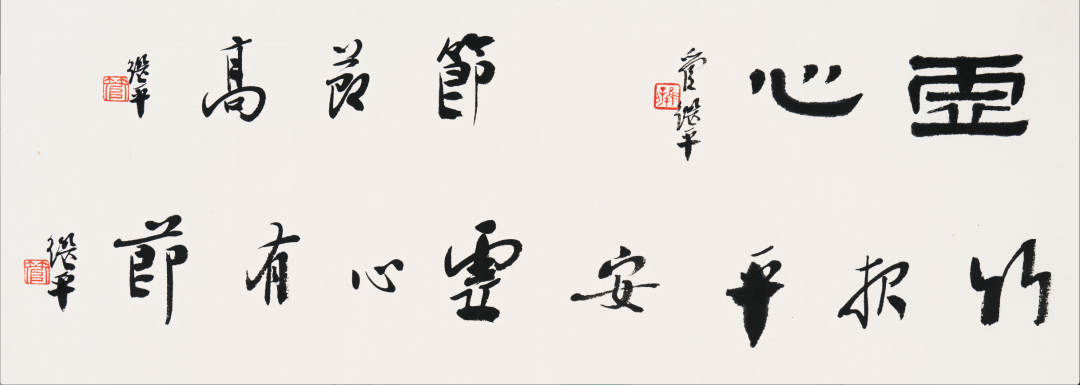 虛心
管繼平
節節高
繼平
管
竹報平安
虛心有節
繼平
管